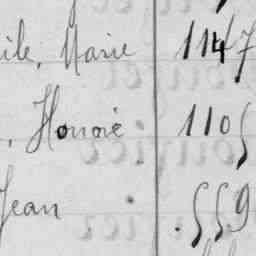 ile, Marie 1147
, Honoré 1105
Jean 559